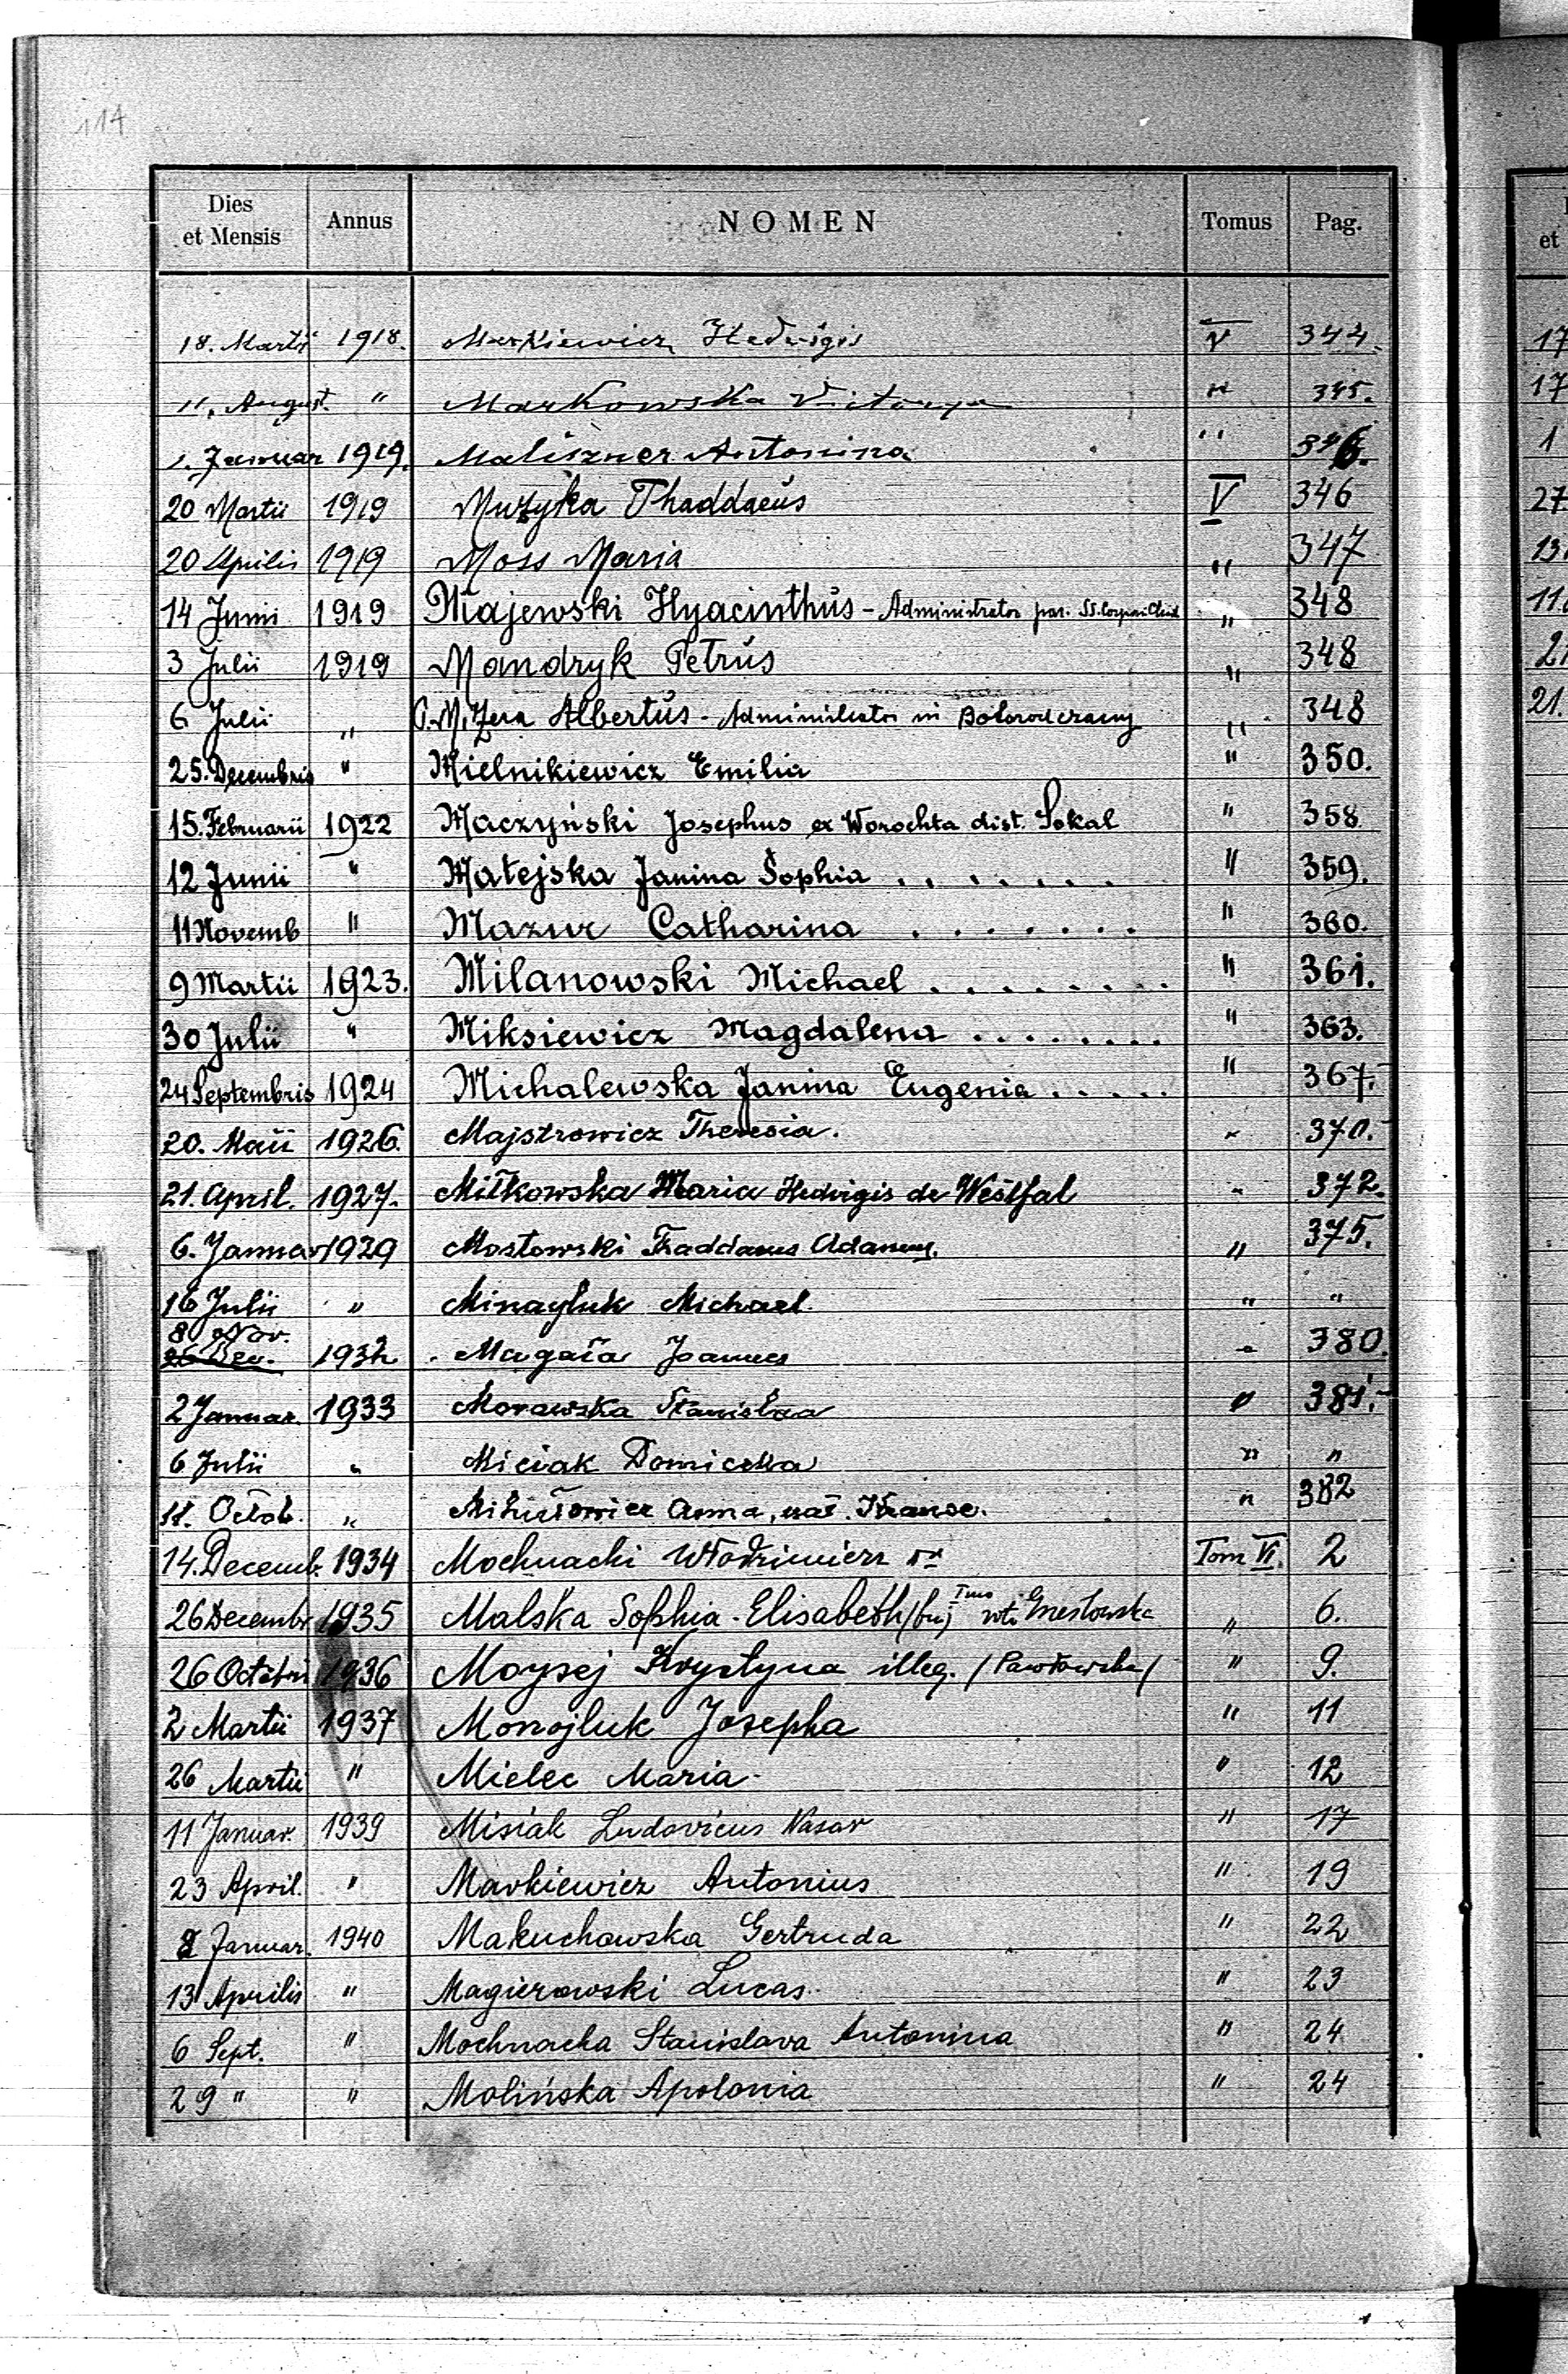 114
Dies et Mensis Annus NOMEN Tomus Pag.
18. Martii 1918. Markiewicz Hedvigis V 344.
11. August. " Markowska Victorya " 345.
1. Januar 1919. Maliszner Antonina " 346.
20 Martii 1919 Muzyka Thaddaeus V 346
20 Aprilis 1919 Moss Maria " 347
14 Junii 1919 Majewski Hyacinthus - Administrator par. SS. " 348
3 Julii 1919 Mandryk Petrus " 348
6 Julii " Albertus - Administrator in Bohorodczany " 348
25. Decembris " Mielnikiewicz Emilia " 350.
15. Februarii 1922 Maczyński Josephus ex Worochta dist. Sokal " 358
12 Junii " Matejska Janina Sophia . . . . . . . " 359.
11 Novemb " Mazur Catharina . . . . . . . " 360.
9 Martii 1923. Milanowski Michael . . . . . . . . " 361.
30 Julii " Miksiewicz Magdalena . . . . . . . . " 363.
24 Septembris 1924 Michalewska Janina Eugenia . . . . . " 367.
20. Maii 1926. Majstrowicz Theresia. " 370.
21. April. 1927. Miłkowska Maria Hedvigis de Westfal " 372.
6. Januar 1929 Mostowski Thaddaeus Adamus. " 375.
16 Julii " Minayluk Michael " "
8 Nov.
26 Dec. 1932 Magača Joannes " 380.
2 Januar. 1933 Morawska Stanisława " 381.
6 Julii " Miciak Domicela " "
11. Octob. " Anna, nat. " 382
14. Decemb. 1934 Mochnacki Włodzimierz Tom VI. 2
26 Decembr 1935 Malska Sophia - Elisabeth Imo voti " 6.
26 Octobri 1936 Moysej Krystyna illeg. /Pawłowska/ " 9.
2 Martii 1937 Monojluk Josepha " 11
26 Martii " Mielec Maria " 12
11 Januar. 1939 Misiak Ludovicus " 17
23 April. " Markiewicz Antonius " 19
2 Januar. 1940 Makuchowska Gertruda " 22
13 Aprilis " Magierowski Lucas " 23
6 Sept. " Mochnacka Stanislava Antonina " 24
29 " " Molińska Apolonia " 24
et
17
17
1
27
13.
11.
2
21.